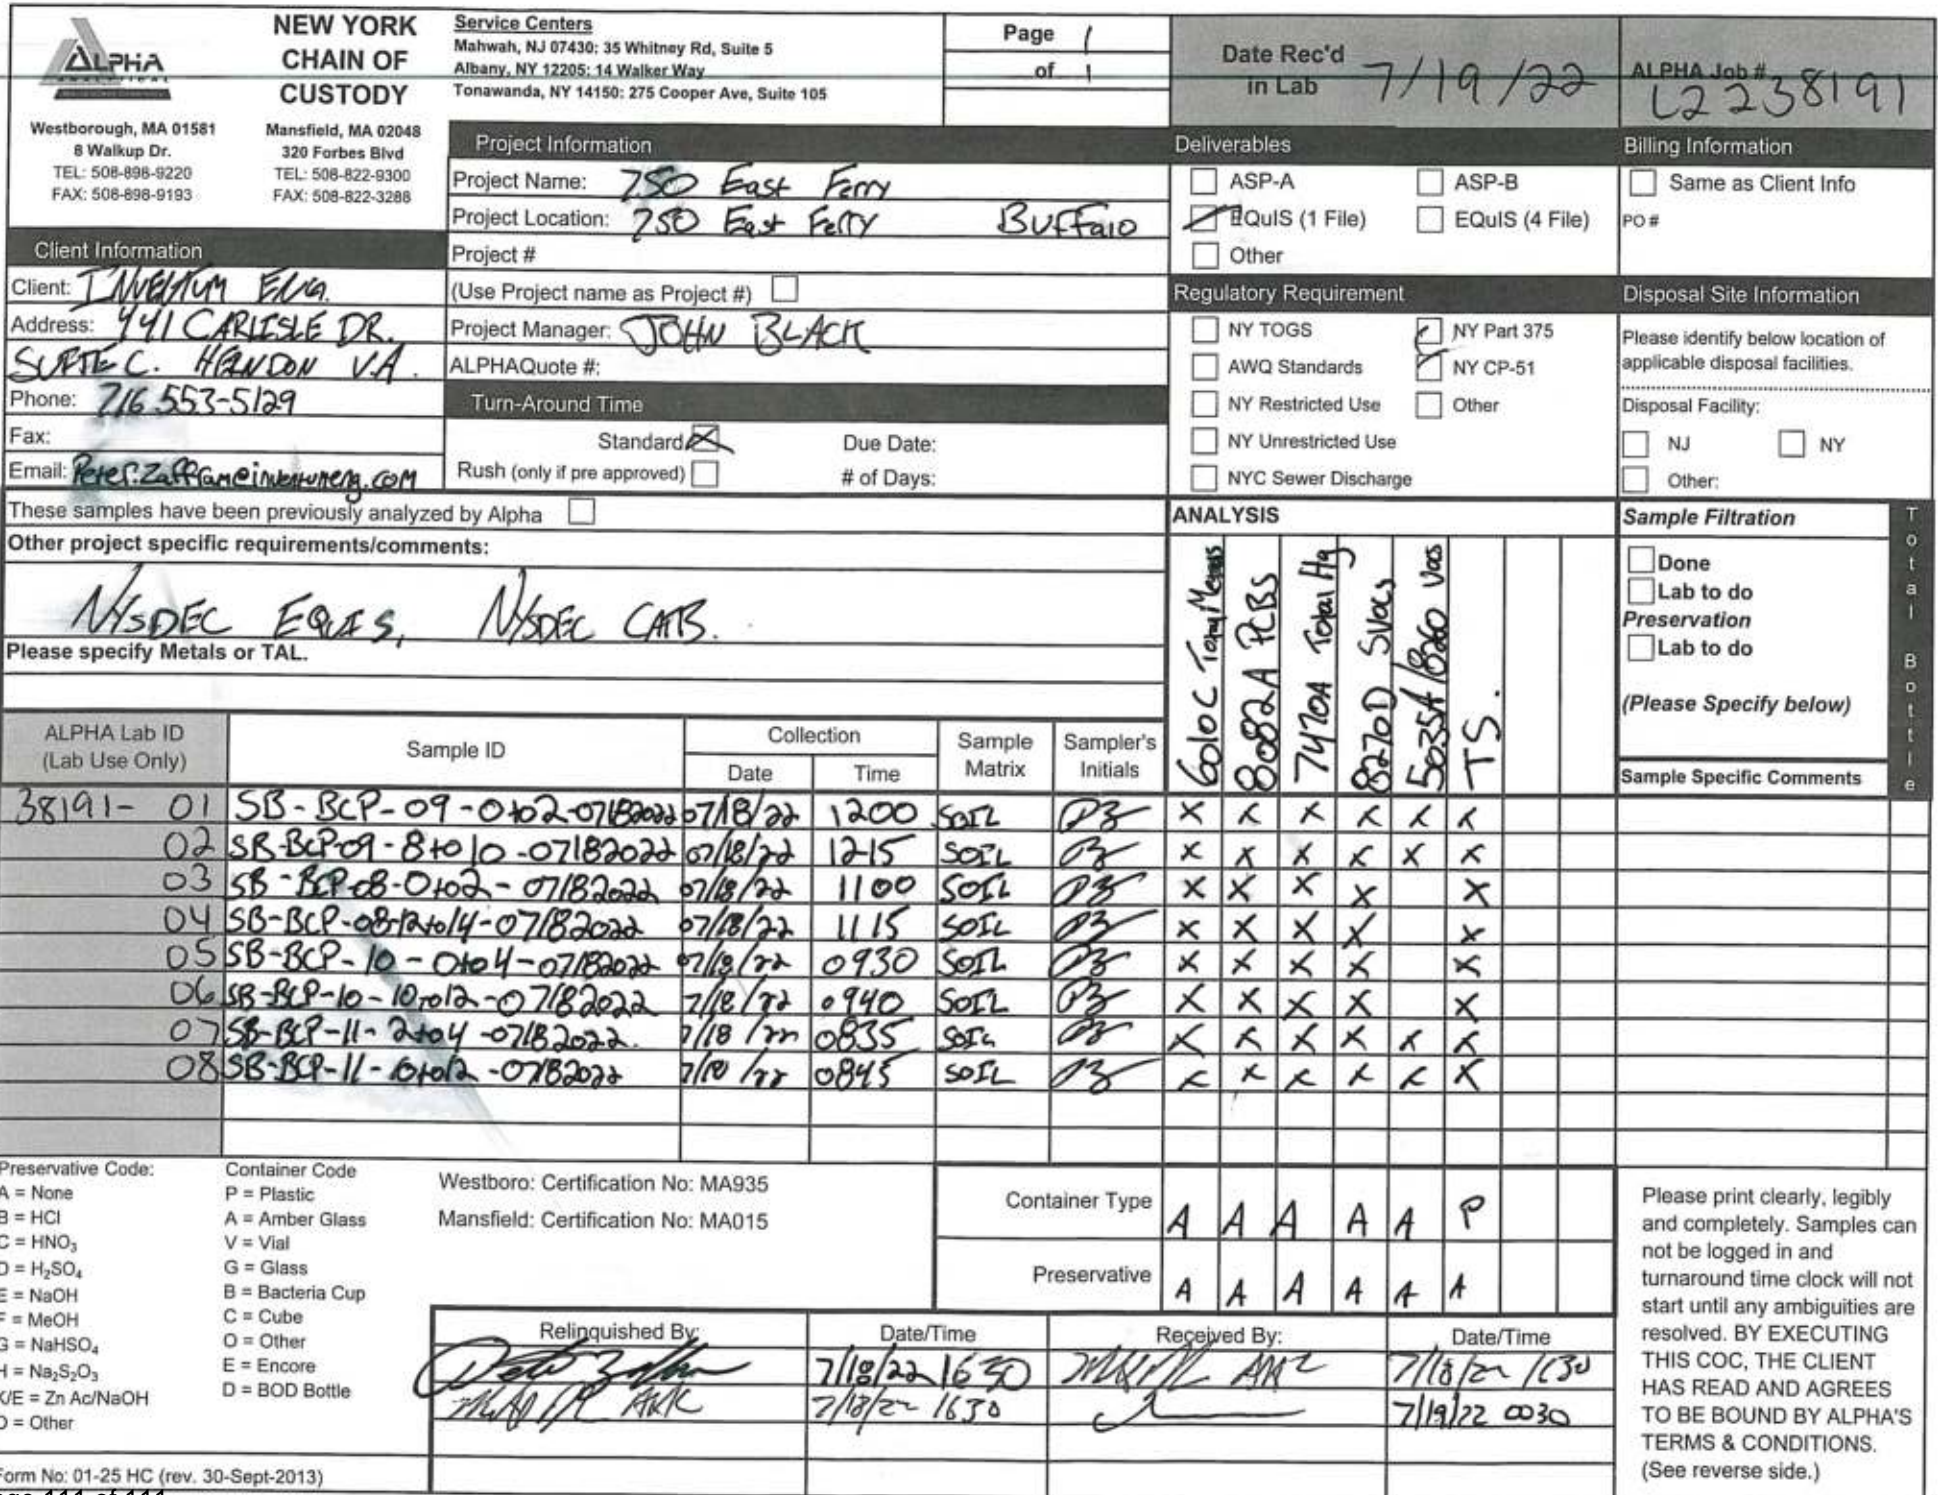 ALPHA
ANALYTICAL
NEW YORK
CHAIN OF
CUSTODY
Westborough, MA 01581
8 Walkup Dr.
TEL: 508-898-9220
FAX: 508-898-9193
Mansfield, MA 02048
320 Forbes Blvd
TEL: 508-822-9300
FAX: 508-822-3288
Service Centers
Mahwah, NJ 07430: 35 Whitney Rd, Suite 5
Albany, NY 12205: 14 Walker Way
Tonawanda, NY 14150: 275 Cooper Ave, Suite 105
Page 1
of 1
Date Rec'd
in Lab 7/19/22
ALPHA Job #
L2238191
Client Information
Client: INVENTUM ENG.
Address: 441 CARLISLE DR.
SUITE C. HERNDON VA.
Phone: 716.553-5129
Fax:
Email:
Project Information
Project Name: 250 East Ferry
Project Location: 250 East Ferry Buffalo
Project #
(Use Project name as Project #)
Project Manager: JOHN BLACK
ALPHAQuote #:
Turn-Around Time
Standard X Due Date:
Rush (only if pre approved) # of Days:
Deliverables
ASP-A ASP-B
EQuIS (1 File) EQuIS (4 File)
Other
Regulatory Requirement
NY TOGS NY Part 375
AWQ Standards NY CP-51
NY Restricted Use Other
NY Unrestricted Use
NYC Sewer Discharge
Billing Information
Same as Client Info
PO #
Disposal Site Information
Please identify below location of
applicable disposal facilities.
Disposal Facility:
NJ NY
Other:
These samples have been previously analyzed by Alpha
Other project specific requirements/comments:
NYSDEC EQUIS, NYSDEC CATB.
Please specify Metals or TAL.
ANALYSIS
6010C Total Metals
8082A PCBS
7470A Total Hg
8270D SVOCs
5035A/8260 VOCs
TS.
Sample Filtration
Done
Lab to do
Preservation
Lab to do
(Please Specify below)
Sample Specific Comments
Total Bottle
ALPHA Lab ID
(Lab Use Only)
Sample ID
Collection
Date Time
Sample
Matrix
Sampler's
Initials
38191- 01 SB-BCP-09-0to2-07182022 07/18/22 1200 SOIL PZ X X X X X X
02 SB-BCP-09-8to10-07182022 07/18/22 1215 SOIL PZ X X X X X X
03 SB-BCP-08-0to2-07182022 07/18/22 1100 SOIL PZ X X X X X
04 SB-BCP-08-12to14-07182022 07/18/22 1115 SOIL PZ X X X X X
05 SB-BCP-10-0to4-07182022 07/18/22 0930 SOIL PZ X X X X X
06 SB-BCP-10-10to12-07182022 7/18/22 0940 SOIL PZ X X X X X
07 SB-BCP-11-2to4-07182022. 7/18/22 0835 SOIL PZ X X X X X X
08 SB-BCP-11-10to12-07182022 7/18/22 0845 SOIL PZ X X X X X X
Preservative Code:
A = None
B = HCl
C = HNO3
D = H2SO4
E = NaOH
F = MeOH
G = NaHSO4
H = Na2S2O3
K/E = Zn Ac/NaOH
O = Other
Container Code
P = Plastic
A = Amber Glass
V = Vial
G = Glass
B = Bacteria Cup
C = Cube
O = Other
E = Encore
D = BOD Bottle
Westboro: Certification No: MA935
Mansfield: Certification No: MA015
Container Type A A A A A P
Preservative A A A A A A
Relinquished By: Date/Time Received By: Date/Time
7/18/22 1630 7/18/22 1630
7/18/22 1630 7/19/22 0030
Please print clearly, legibly
and completely. Samples can
not be logged in and
turnaround time clock will not
start until any ambiguities are
resolved. BY EXECUTING
THIS COC, THE CLIENT
HAS READ AND AGREES
TO BE BOUND BY ALPHA'S
TERMS & CONDITIONS.
(See reverse side.)
Form No: 01-25 HC (rev. 30-Sept-2013)
Page 111 of 111